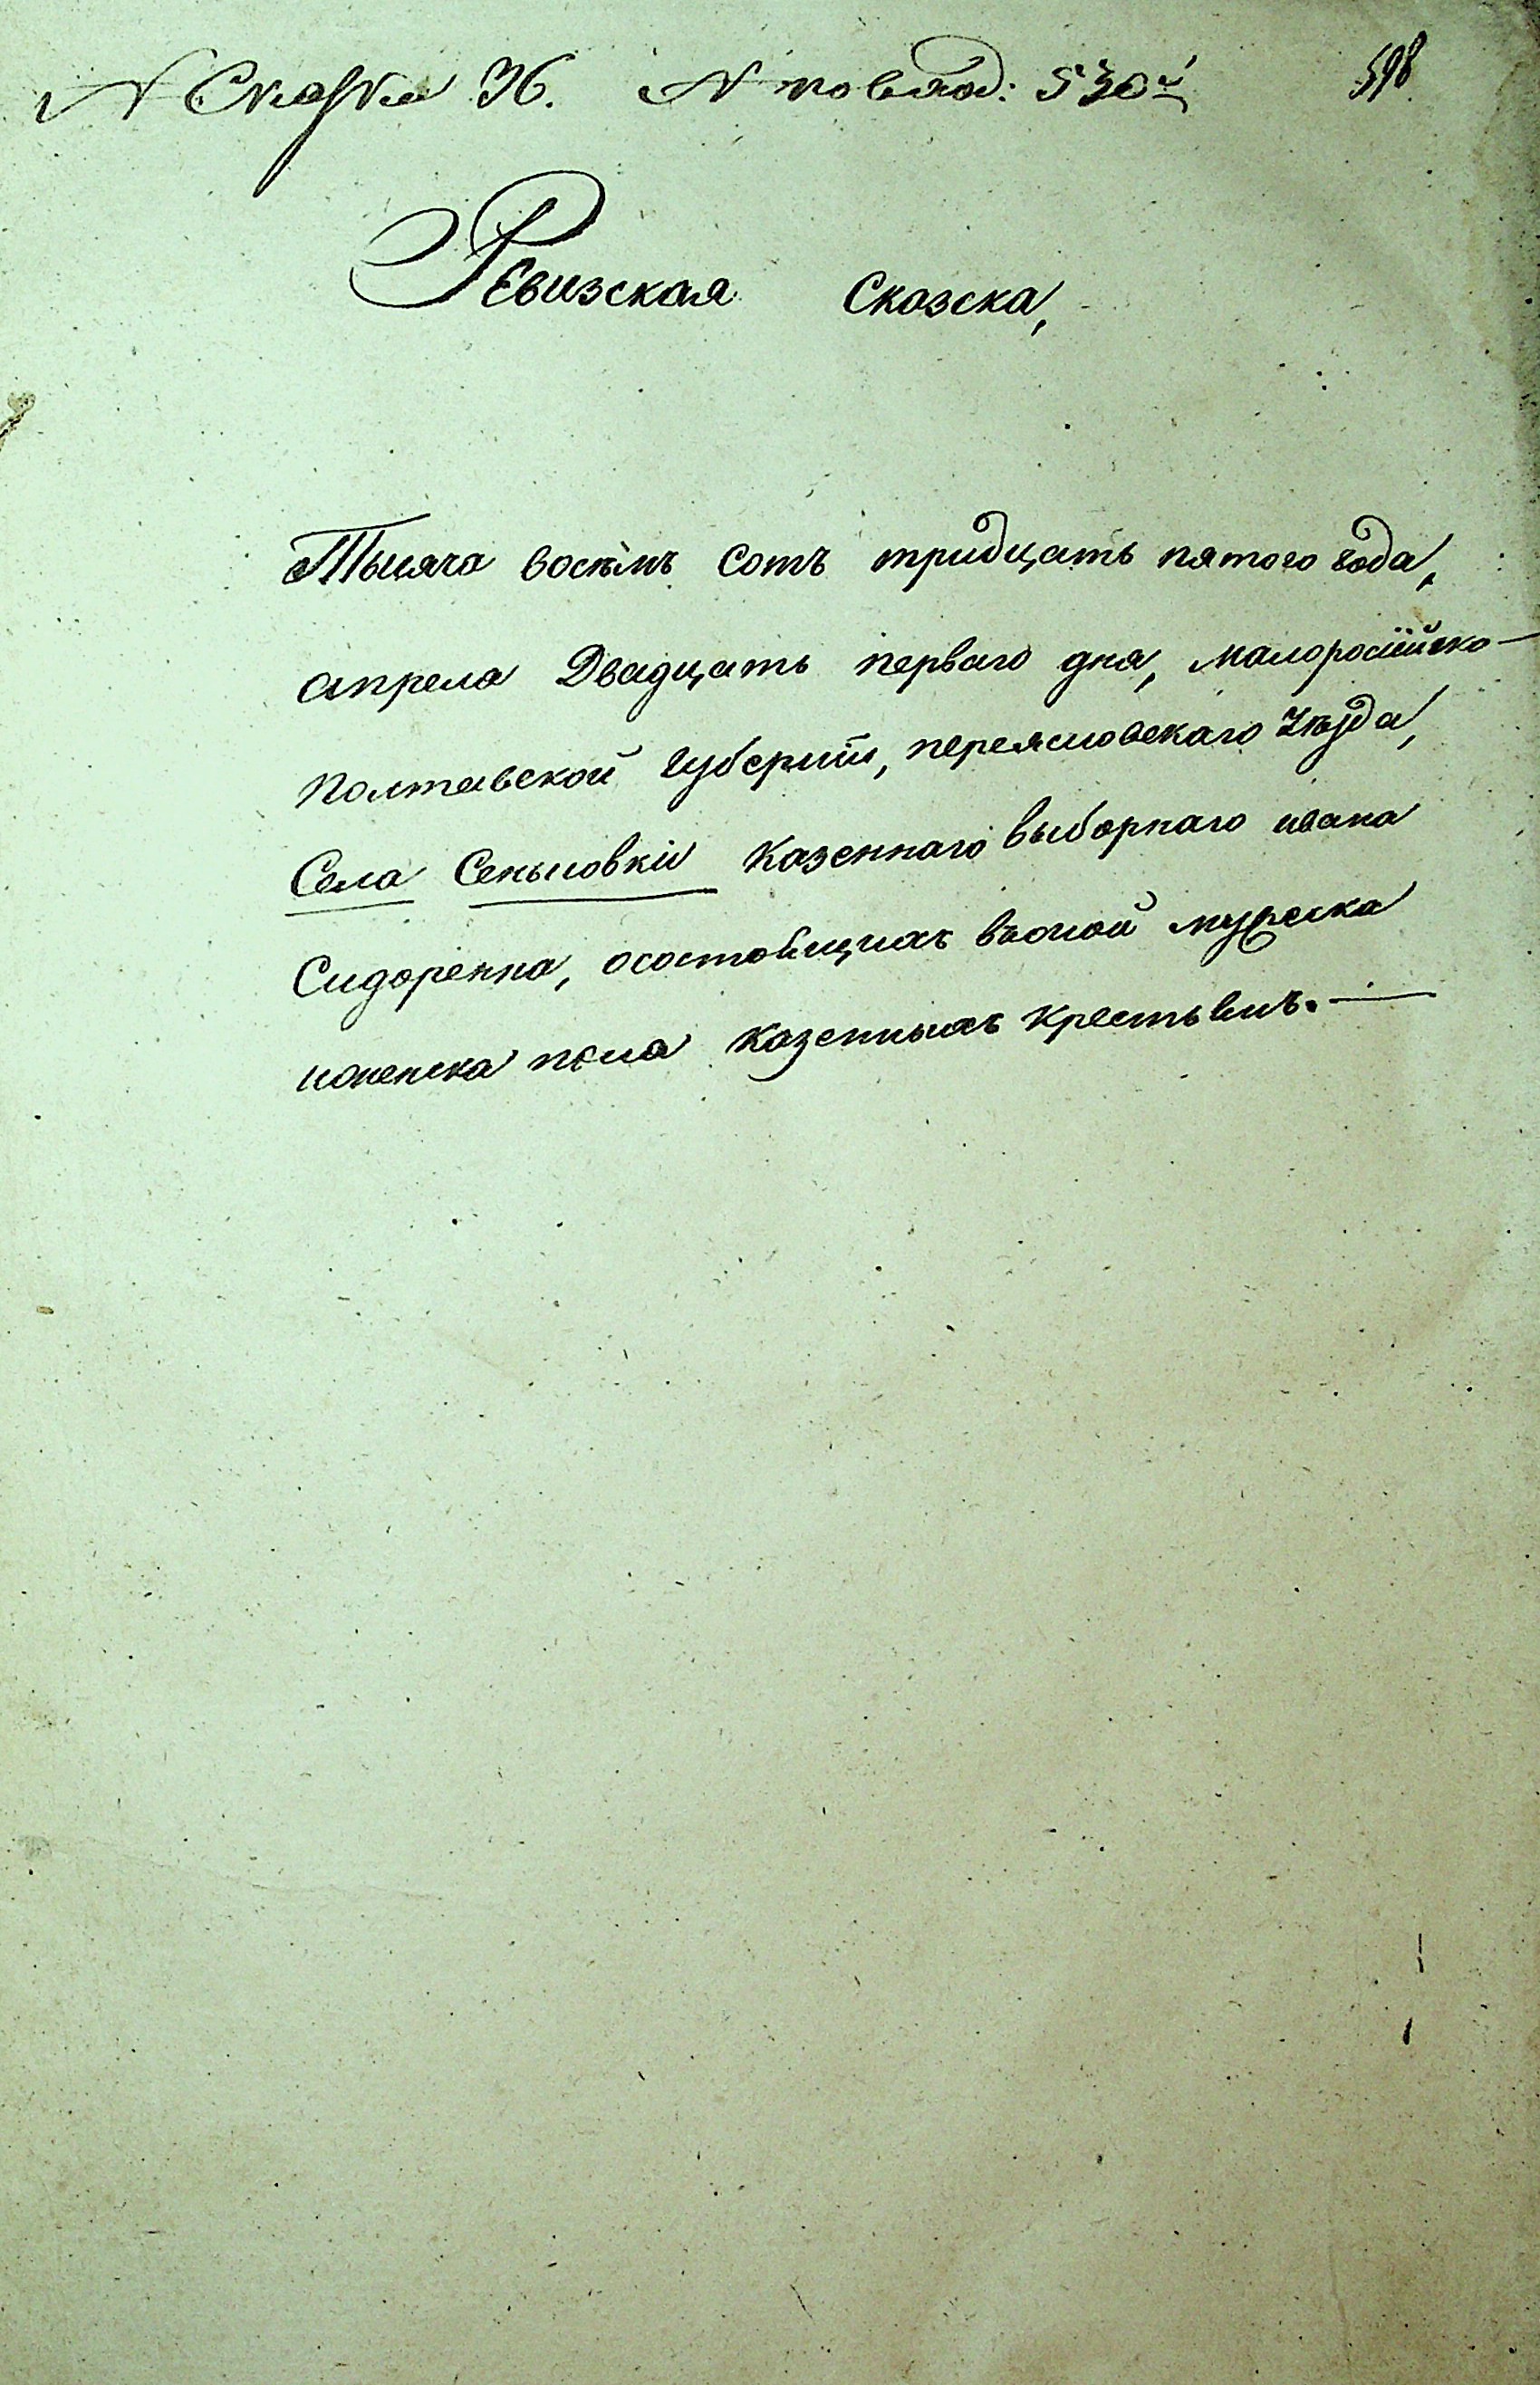 N Сказки 36. N поряд: 530й 598
Ревизская Сказска,
Тысяча восѣмъ Сотъ тридцать пятого года,
апреля Двадцать перваго дня, малоросійско-
Полтавской губерніи, переясловскаго Уѣзда,
Села Сеньковкіи Казеннаго выборнаго ивана
Сидоренка, осостоящихъ въоной мужеска
иоженска пола казенныхъ крестьянъ.—